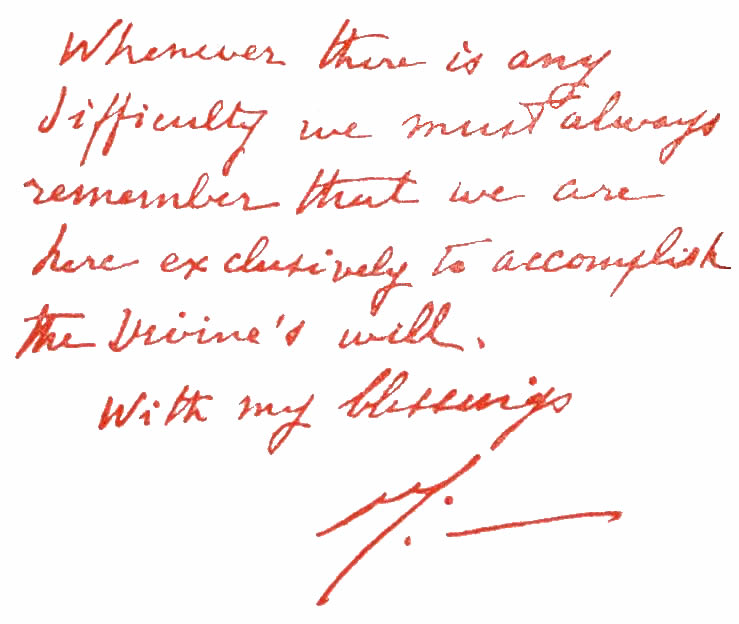 Whenever there is any
difficulty we must always
remember that we are
here exclusively to accomplish
the Divine's will.
With my blessings